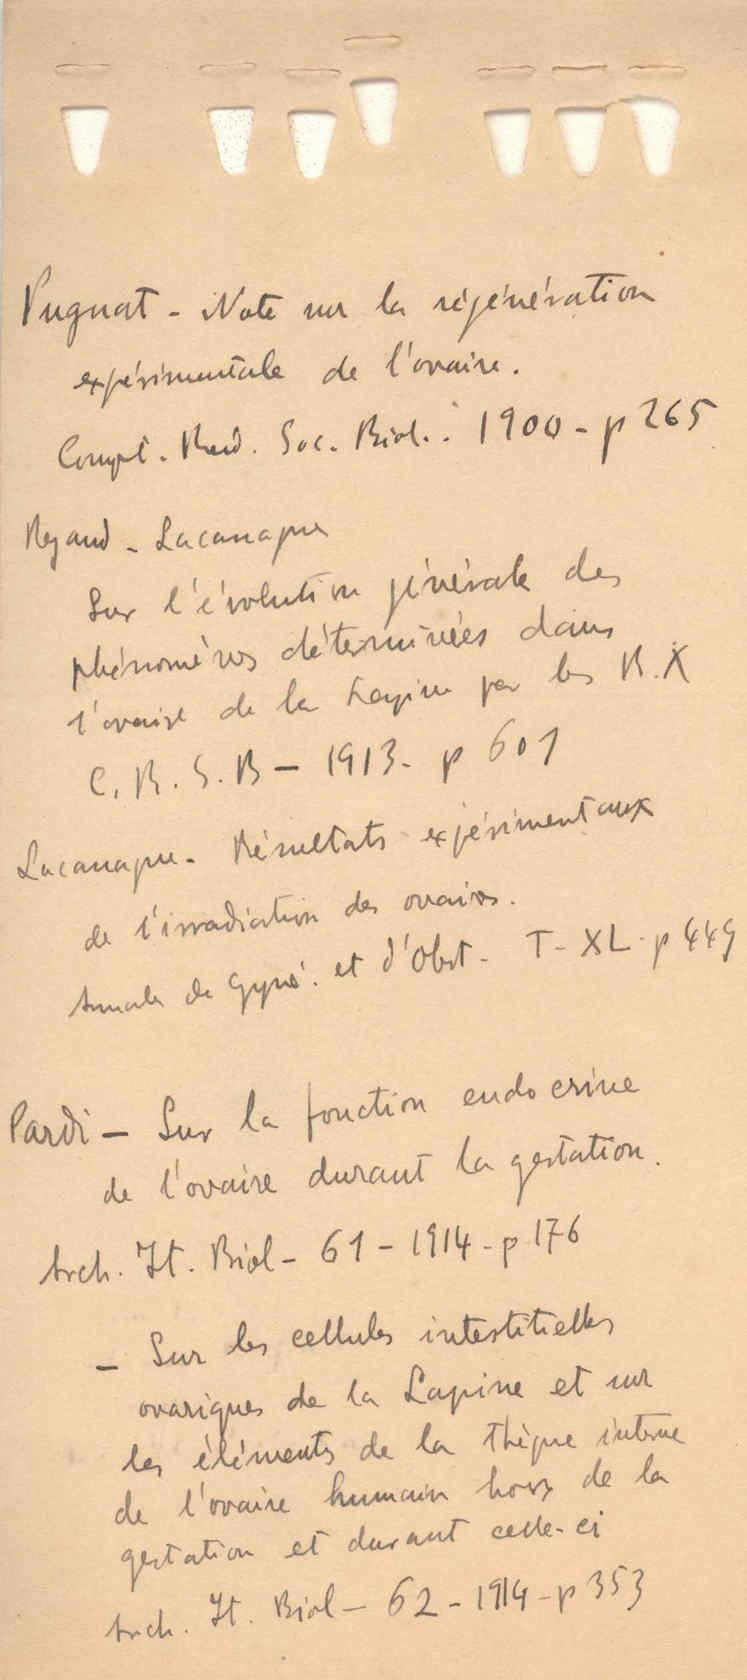 Pugnat - Note sur la régénération
expérimentale de l'ovaire.
Compt. Rend. Soc. Biol. : 1900 - p 265
Regaud - Lacassagne
Sur l'évolution générale des
phénomènes déterminées dans
l'ovaire de la Lapine par les R.X
C. R. S. B - 1913 - p 601
Lacassagne. Résultats expérimentaux
de l'irradiation des ovaires.
Annales de Gyné. et d'Obst - T - XL - p 449
Pardi - Sur la fonction endocrine
de l'ovaire durant la gestation.
Arch. It. Biol - 61 - 1914 - p 176
- Sur les cellules interstitielles
ovariques de la Lapine et sur
les éléments de la thèque interne
de l'ovaire humain hors de la
gestation et durant celle-ci
Arch. It. Biol - 62 - 1914 - p 353